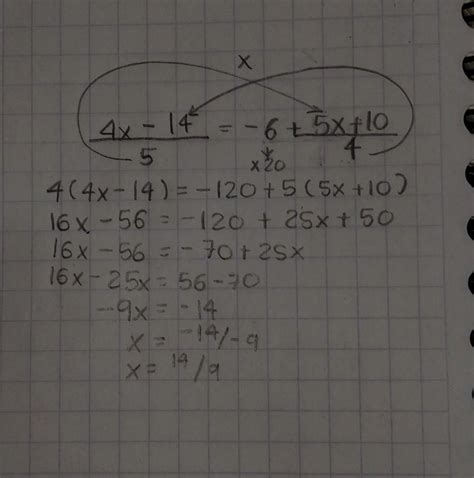 x
4x - 14 = -6 + 5x+10
5 x20 4
4(4x-14) = -120+5(5x+10)
16x - 56 = -120 + 25x + 50
16x - 56 = - 70 + 25x
16x - 25x = 56 - 70
-9x = -14
x = -14/-9
x = 14/9